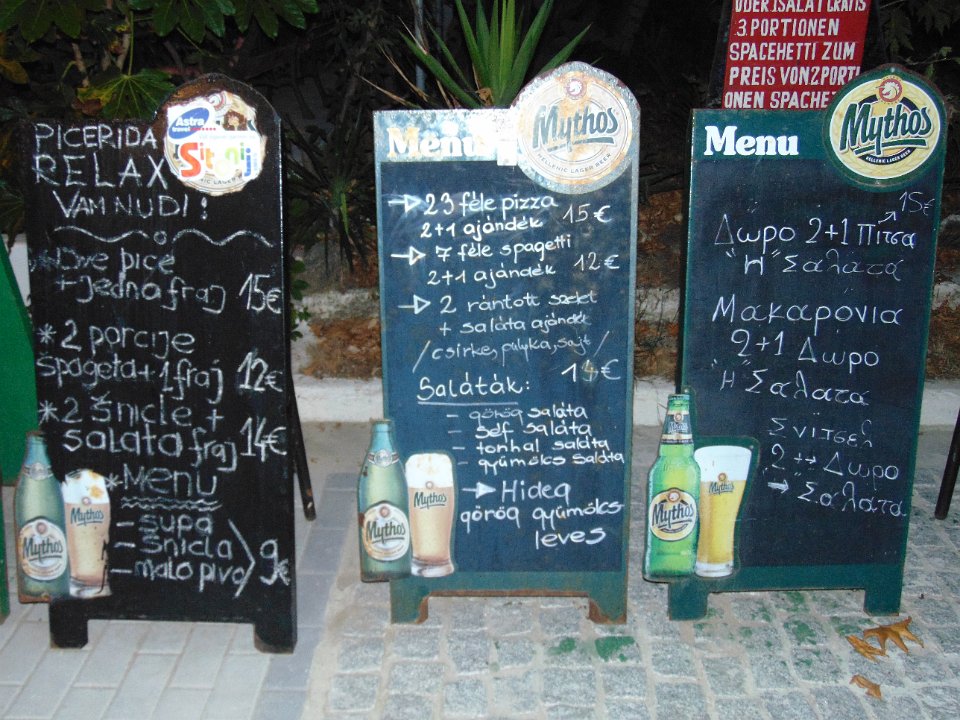 ODER 1SALAT GRATIS
3.PORTIONEN
SPACEHETTI ZUM
PREIS VON2PORTI
ONEN SPACHE
PICERIDA
RELAX
VAM NUDI:
*Dve pice
+jedna fraj 15€
*2 porcije
špageta+1fraj 12€
*2 šnicle +
salata fraj 14€
*Menu
- supa
- šnicla
- malo pivo 9€
Astra
travel
Mythos
Menu
Mythos
HELLENIC LAGER BEER
→ 23 féle pizza
2+1 ajándék 15€
→ 7 féle spagetti
2+1 ajándék 12€
→ 2 rántott szelet
+ saláta ajándék
/csirke, pulyka, sajt/
14€
Saláták:
- görög saláta
- séf saláta
- tonhal saláta
- gyümölcs saláta
→ Hideg
görög gyümölcs-
leves
Mythos
Mythos
Menu
Mythos
HELLENIC LAGER BEER
15€
Δωρο 2+1 Πιτσα
"Η" Σαλατα
Μακαρόνια
2+1 Δωρο
Η Σαλατα
Σνιτσελ
2 → Δωρο
→ Σαλατα
Mythos
Mythos